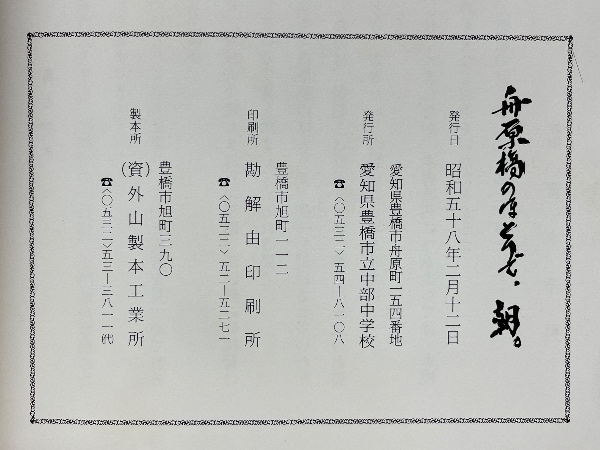 舟原橋のほとりで、朝。
発行日 昭和五十八年二月十二日
愛知県豊橋市舟原町一五四番地
発行所 愛知県豊橋市立中部中学校
☎〈〇五三二〉五四―八一〇八
豊橋市旭町一一二
印刷所 勘解由印刷所
☎〈〇五三二〉五二―五二七一
豊橋市旭町三九〇
製本所 (資)外山製本工業所
☎〈〇五三二〉五三―三八一一㈹